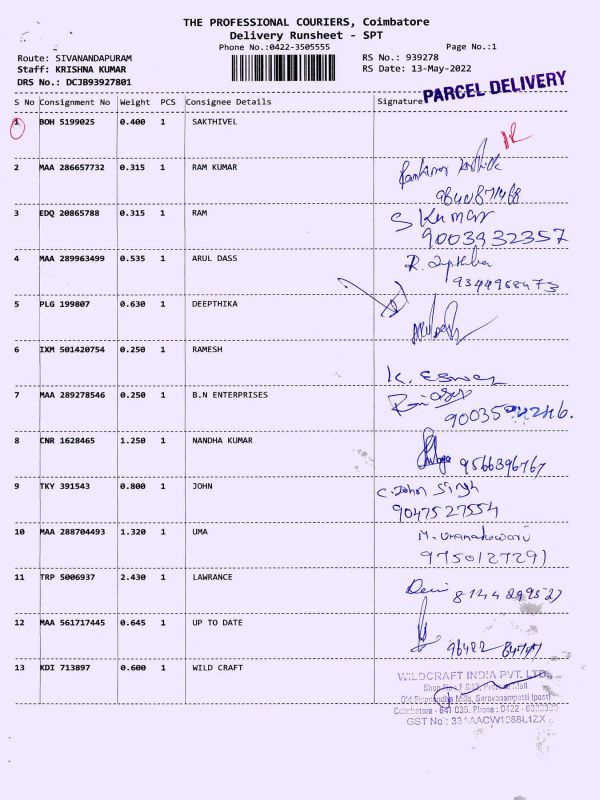 THE PROFESSIONAL COURIERS, Coimbatore
Delivery Runsheet - SPT
Phone No.:0422-3505555
Page No.:1
Route: SIVANANDAPURAM
RS No.: 939278
Staff: KRISHNA KUMAR
RS Date: 13-May-2022
DRS No.: DCJB93927801
PARCEL DELIVERY
S No Consignment No Weight PCS Consignee Details Signature
1 BOH 5199025 0.400 1 SAKTHIVEL
2 MAA 286657732 0.315 1 RAM KUMAR
3 EDQ 20865788 0.315 1 RAM S Kumar
9003932357
4 MAA 289963499 0.535 1 ARUL DASS
9344968473
5 PLG 199807 0.630 1 DEEPTHIKA
6 IXM 501420754 0.250 1 RAMESH
K. Eswar
7 MAA 289278546 0.250 1 B.N ENTERPRISES
8 CNR 1628465 1.250 1 NANDHA KUMAR
9566396767
9 TKY 391543 0.800 1 JOHN C. John Singh
9047527554
10 MAA 288704493 1.320 1 UMA M. Umamaheswari
9750127291
11 TRP 5006937 2.430 1 LAWRANCE Devi
12 MAA 561717445 0.645 1 UP TO DATE
13 KDI 713897 0.600 1 WILD CRAFT
WILDCRAFT INDIA PVT. LTD.
Mills, Saravanampatti (post)
Coimbatore - 641 035. Phone : 0422 -
GST No :